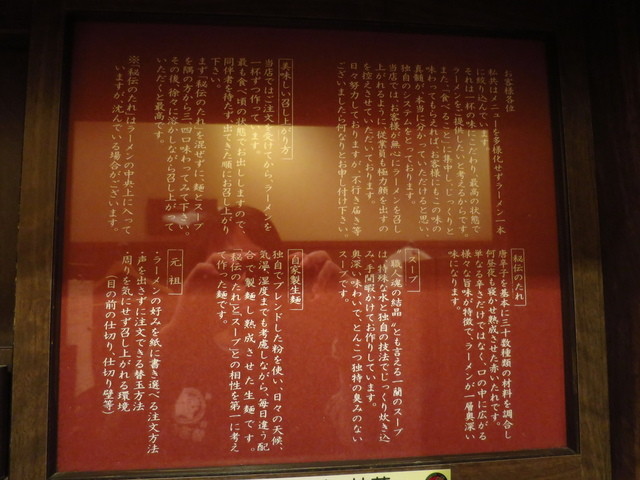 お客様各位
私共はメニューを多様化せずラーメン一本
に絞り込んでいます。
それは「一杯の味」にこだわり、最高の状態で
ラーメンをご提供したいと考えるからです。
また、「食べること」に集中してじっくりと
味わってもらえれば、お客様にもこの味の
真髄が、本当に分かっていただけると思い、
独自のシステムをとっております。
当店では、お客様が無心にラーメンを召し
上がれるように従業員も極力顔を出すの
を控えさせていただいております。
日々努力しておりますが、不行き届き等
ございましたら何なりとお申し付け下さい。
美味しい召し上がり方
当店ではご注文を受けてから、ラーメンを
一杯ずつ作っています。
最も食べ頃の状態でお出ししますので、
同伴者を待たず出てきた順にお召し上がり
下さい。
まず「秘伝のたれ」を混ぜずに、麺とスープ
を隅の方から三・四口味わってみて下さい。
その後、徐々に溶かしながら召し上がって
いただくと最高です。
※「秘伝のたれ」はラーメンの中央上に入って
いますが沈んでいる場合がございます。
秘伝のたれ
唐辛子を基本に三十数種類の材料を調合し
何昼夜も寝かせ熟成させた赤いたれです。
単なる辛さだけではなく、口の中に広がる
様々な旨味が特徴で、ラーメンが一層奥深い
味になります。
スープ
“職人魂の結晶”とも言える一蘭のスープ
は、特殊な水と独自の技法でじっくり炊き込
み、手間暇かけてお作りしています。
奥深い味わいで、とんこつ独特の臭みのない
スープです。
自家製生麺
独自でブレンドした粉を使い、日々の天候、
気温、湿度までも考慮しながら、毎日違う配
合で製麺し熟成させた生麺です。
「秘伝のたれ」と「スープ」との相性を第一に考え
て作った麺です。
元祖
・ラーメンの好みを紙に書き選べる注文方法
・声を出さずに注文できる替玉方法
・周りを気にせず召し上がれる環境
（目の前の仕切り、仕切り壁等）